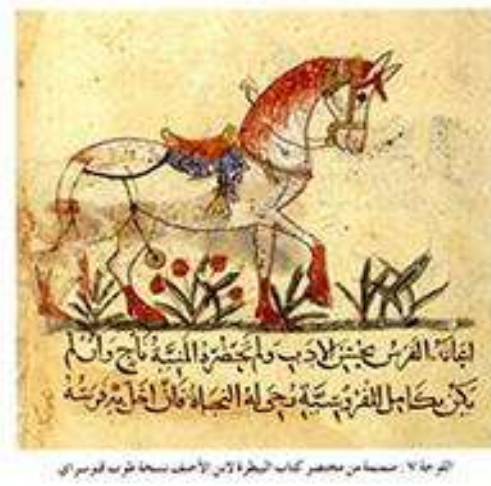 الفرس بحسن الادب ولم تحضره المنية ناج وان لم
يكن بكامل الفروسية رجى له النجاة فان اخل
اللوحة ٧ : صفحة من مختصر كتاب البيطرة لابن الأحنف نسخة طوب قبوسراي